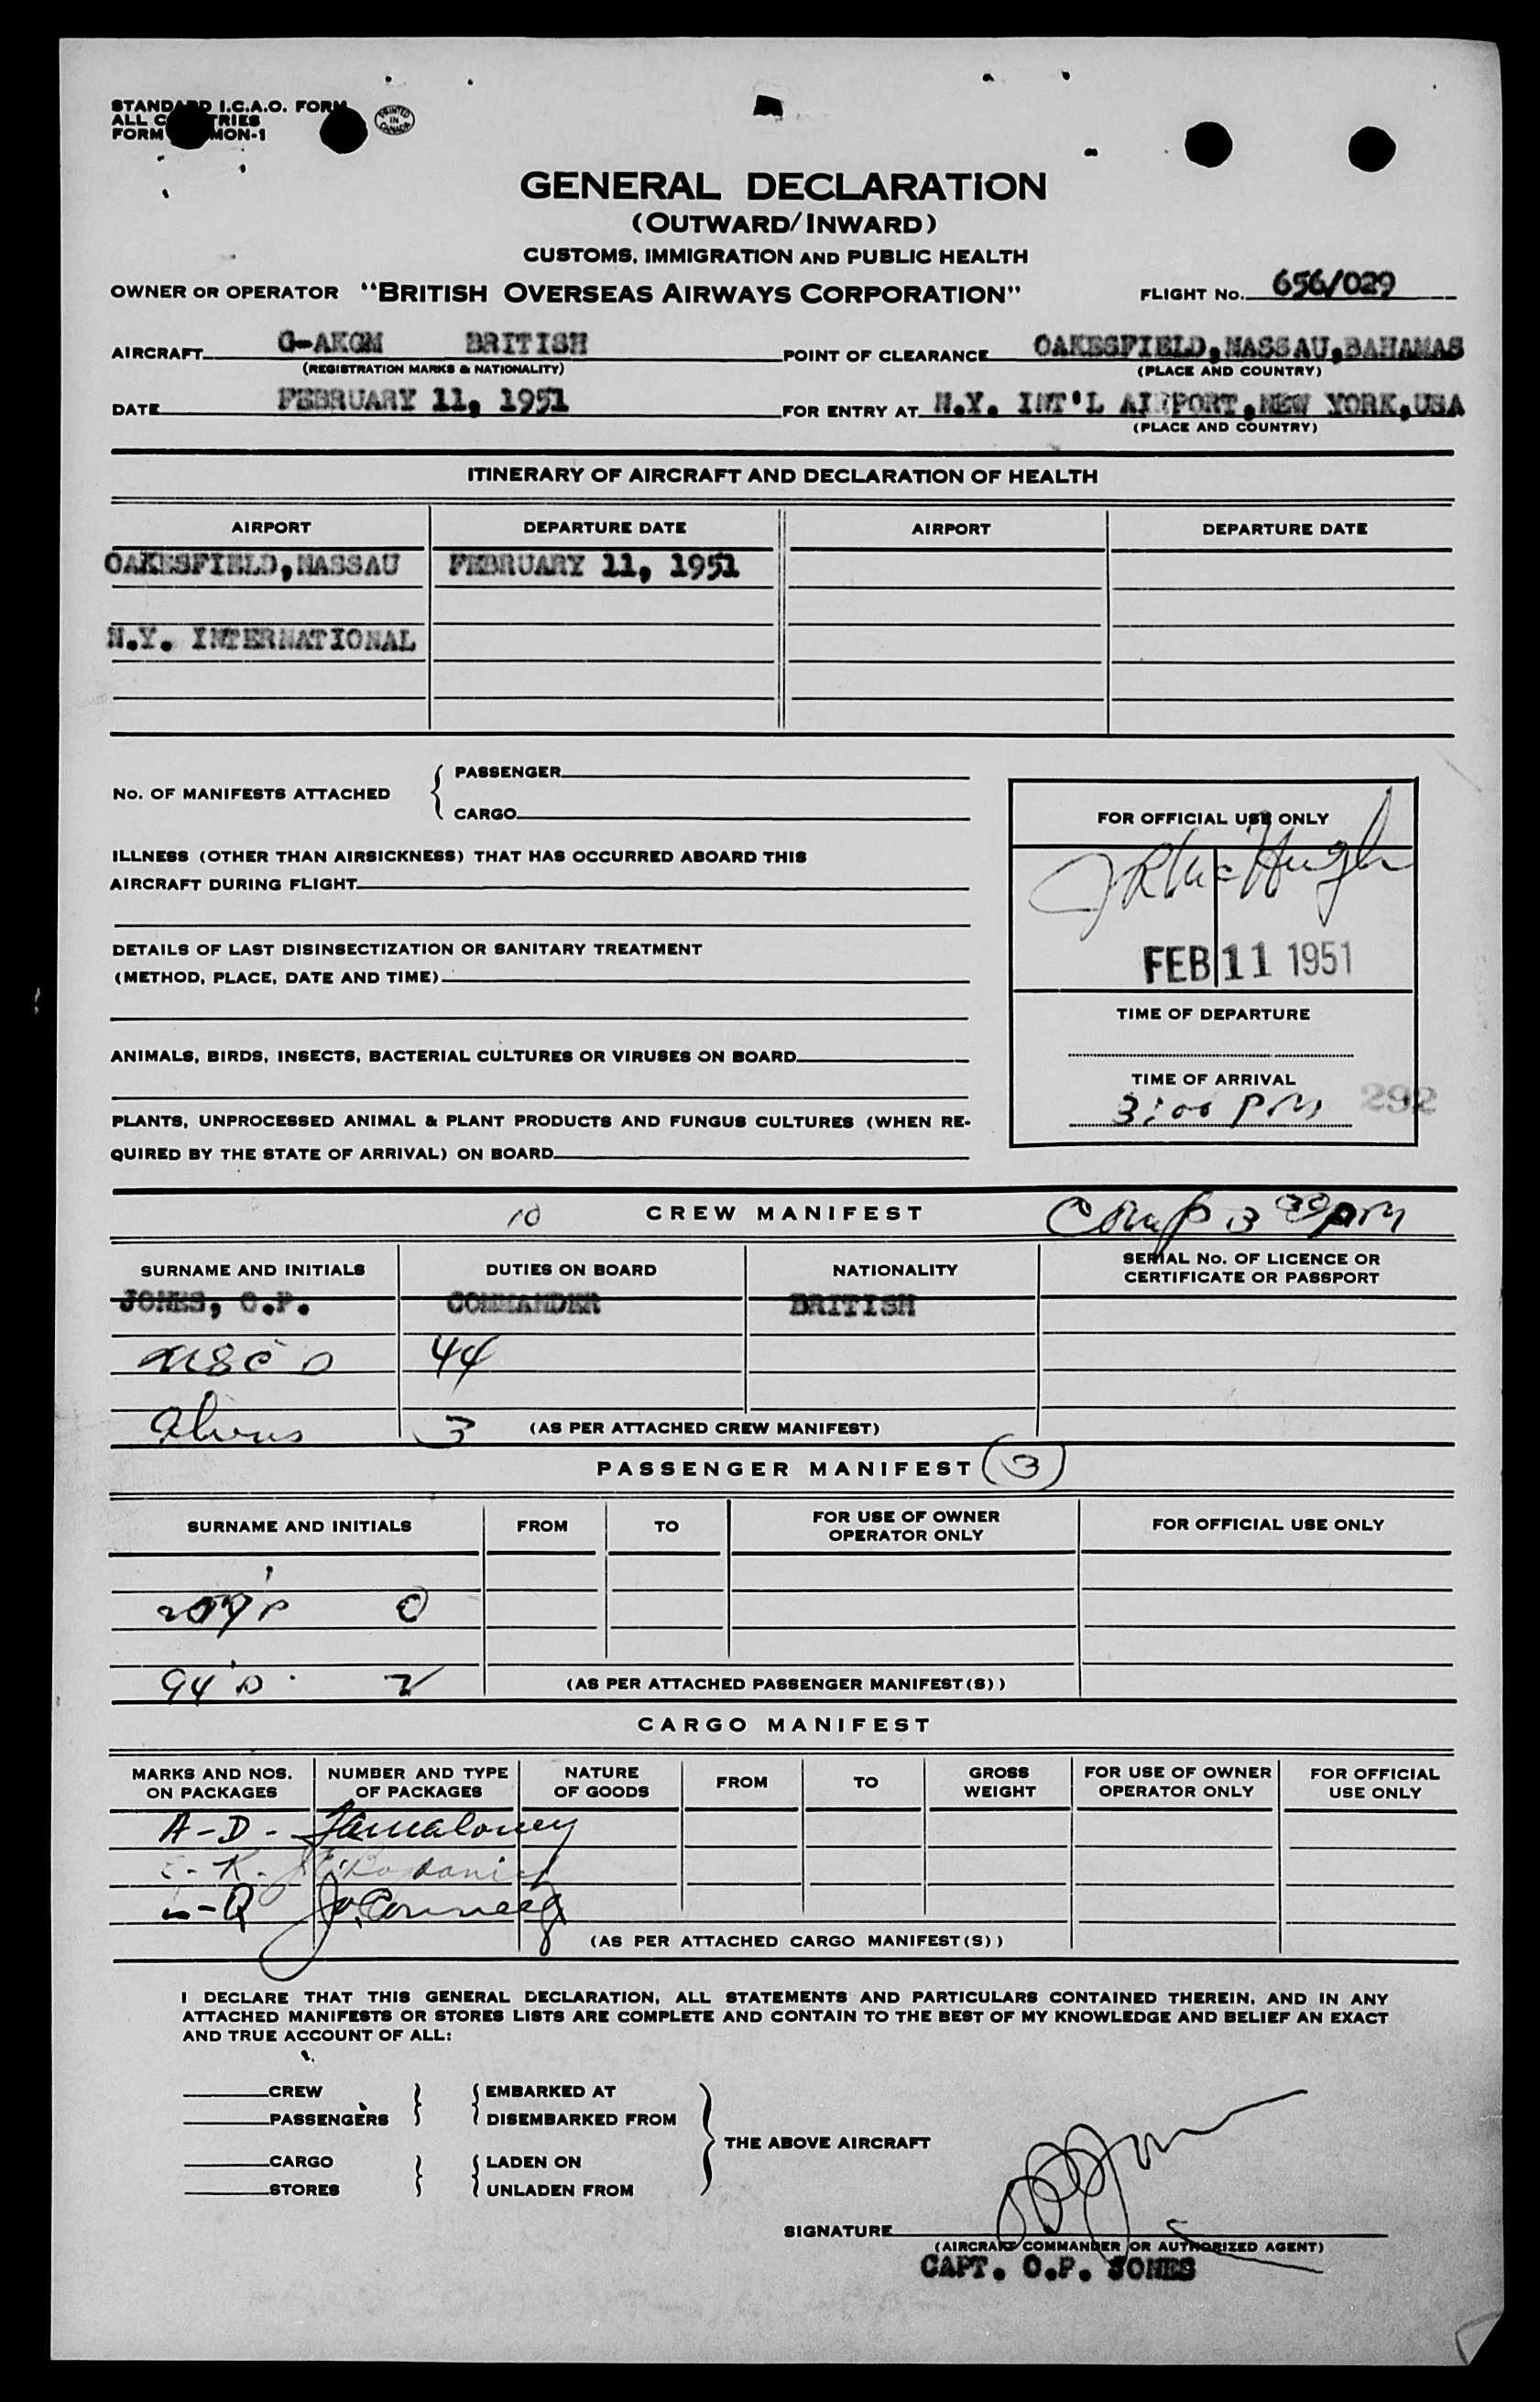 STANDARD I.C.A.O. FORM
ALL COUNTRIES
FORM MON-1
PRINTED IN CANADA
GENERAL DECLARATION
(OUTWARD/INWARD)
CUSTOMS, IMMIGRATION AND PUBLIC HEALTH
OWNER OR OPERATOR "BRITISH OVERSEAS AIRWAYS CORPORATION" FLIGHT No. 656/029
AIRCRAFT G-AKGM BRITISH POINT OF CLEARANCE OAKESFIELD, NASSAU, BAHAMAS
(REGISTRATION MARKS & NATIONALITY) (PLACE AND COUNTRY)
DATE FEBRUARY 11, 1951 FOR ENTRY AT N.Y. INT'L AIRPORT, NEW YORK, USA
(PLACE AND COUNTRY)
ITINERARY OF AIRCRAFT AND DECLARATION OF HEALTH
AIRPORT DEPARTURE DATE AIRPORT DEPARTURE DATE
OAKESFIELD, NASSAU FEBRUARY 11, 1951
N.Y. INTERNATIONAL
No. OF MANIFESTS ATTACHED { PASSENGER
CARGO
ILLNESS (OTHER THAN AIRSICKNESS) THAT HAS OCCURRED ABOARD THIS
AIRCRAFT DURING FLIGHT
DETAILS OF LAST DISINSECTIZATION OR SANITARY TREATMENT
(METHOD, PLACE, DATE AND TIME)
ANIMALS, BIRDS, INSECTS, BACTERIAL CULTURES OR VIRUSES ON BOARD
PLANTS, UNPROCESSED ANIMAL & PLANT PRODUCTS AND FUNGUS CULTURES (WHEN RE-
QUIRED BY THE STATE OF ARRIVAL) ON BOARD
FOR OFFICIAL USE ONLY
J R McHugh
FEB 11 1951
TIME OF DEPARTURE
TIME OF ARRIVAL
3:00 PM 292
10 CREW MANIFEST Comp 3 PM
SURNAME AND INITIALS DUTIES ON BOARD NATIONALITY SERIAL No. OF LICENCE OR
CERTIFICATE OR PASSPORT
JONES, O.P. COMMANDER BRITISH
44
Aliens 3 (AS PER ATTACHED CREW MANIFEST)
PASSENGER MANIFEST (3)
SURNAME AND INITIALS FROM TO FOR USE OF OWNER
OPERATOR ONLY FOR OFFICIAL USE ONLY
0
94's 2 (AS PER ATTACHED PASSENGER MANIFEST(S))
CARGO MANIFEST
MARKS AND NOS.
ON PACKAGES NUMBER AND TYPE
OF PACKAGES NATURE
OF GOODS FROM TO GROSS
WEIGHT FOR USE OF OWNER
OPERATOR ONLY FOR OFFICIAL
USE ONLY
A-D-
K-
L-Q
(AS PER ATTACHED CARGO MANIFEST(S))
I DECLARE THAT THIS GENERAL DECLARATION, ALL STATEMENTS AND PARTICULARS CONTAINED THEREIN, AND IN ANY
ATTACHED MANIFESTS OR STORES LISTS ARE COMPLETE AND CONTAIN TO THE BEST OF MY KNOWLEDGE AND BELIEF AN EXACT
AND TRUE ACCOUNT OF ALL:
CREW EMBARKED AT
PASSENGERS DISEMBARKED FROM
THE ABOVE AIRCRAFT
CARGO LADEN ON
STORES UNLADEN FROM
SIGNATURE OPJones
(AIRCRAFT COMMANDER OR AUTHORIZED AGENT)
CAPT. O.P. JONES